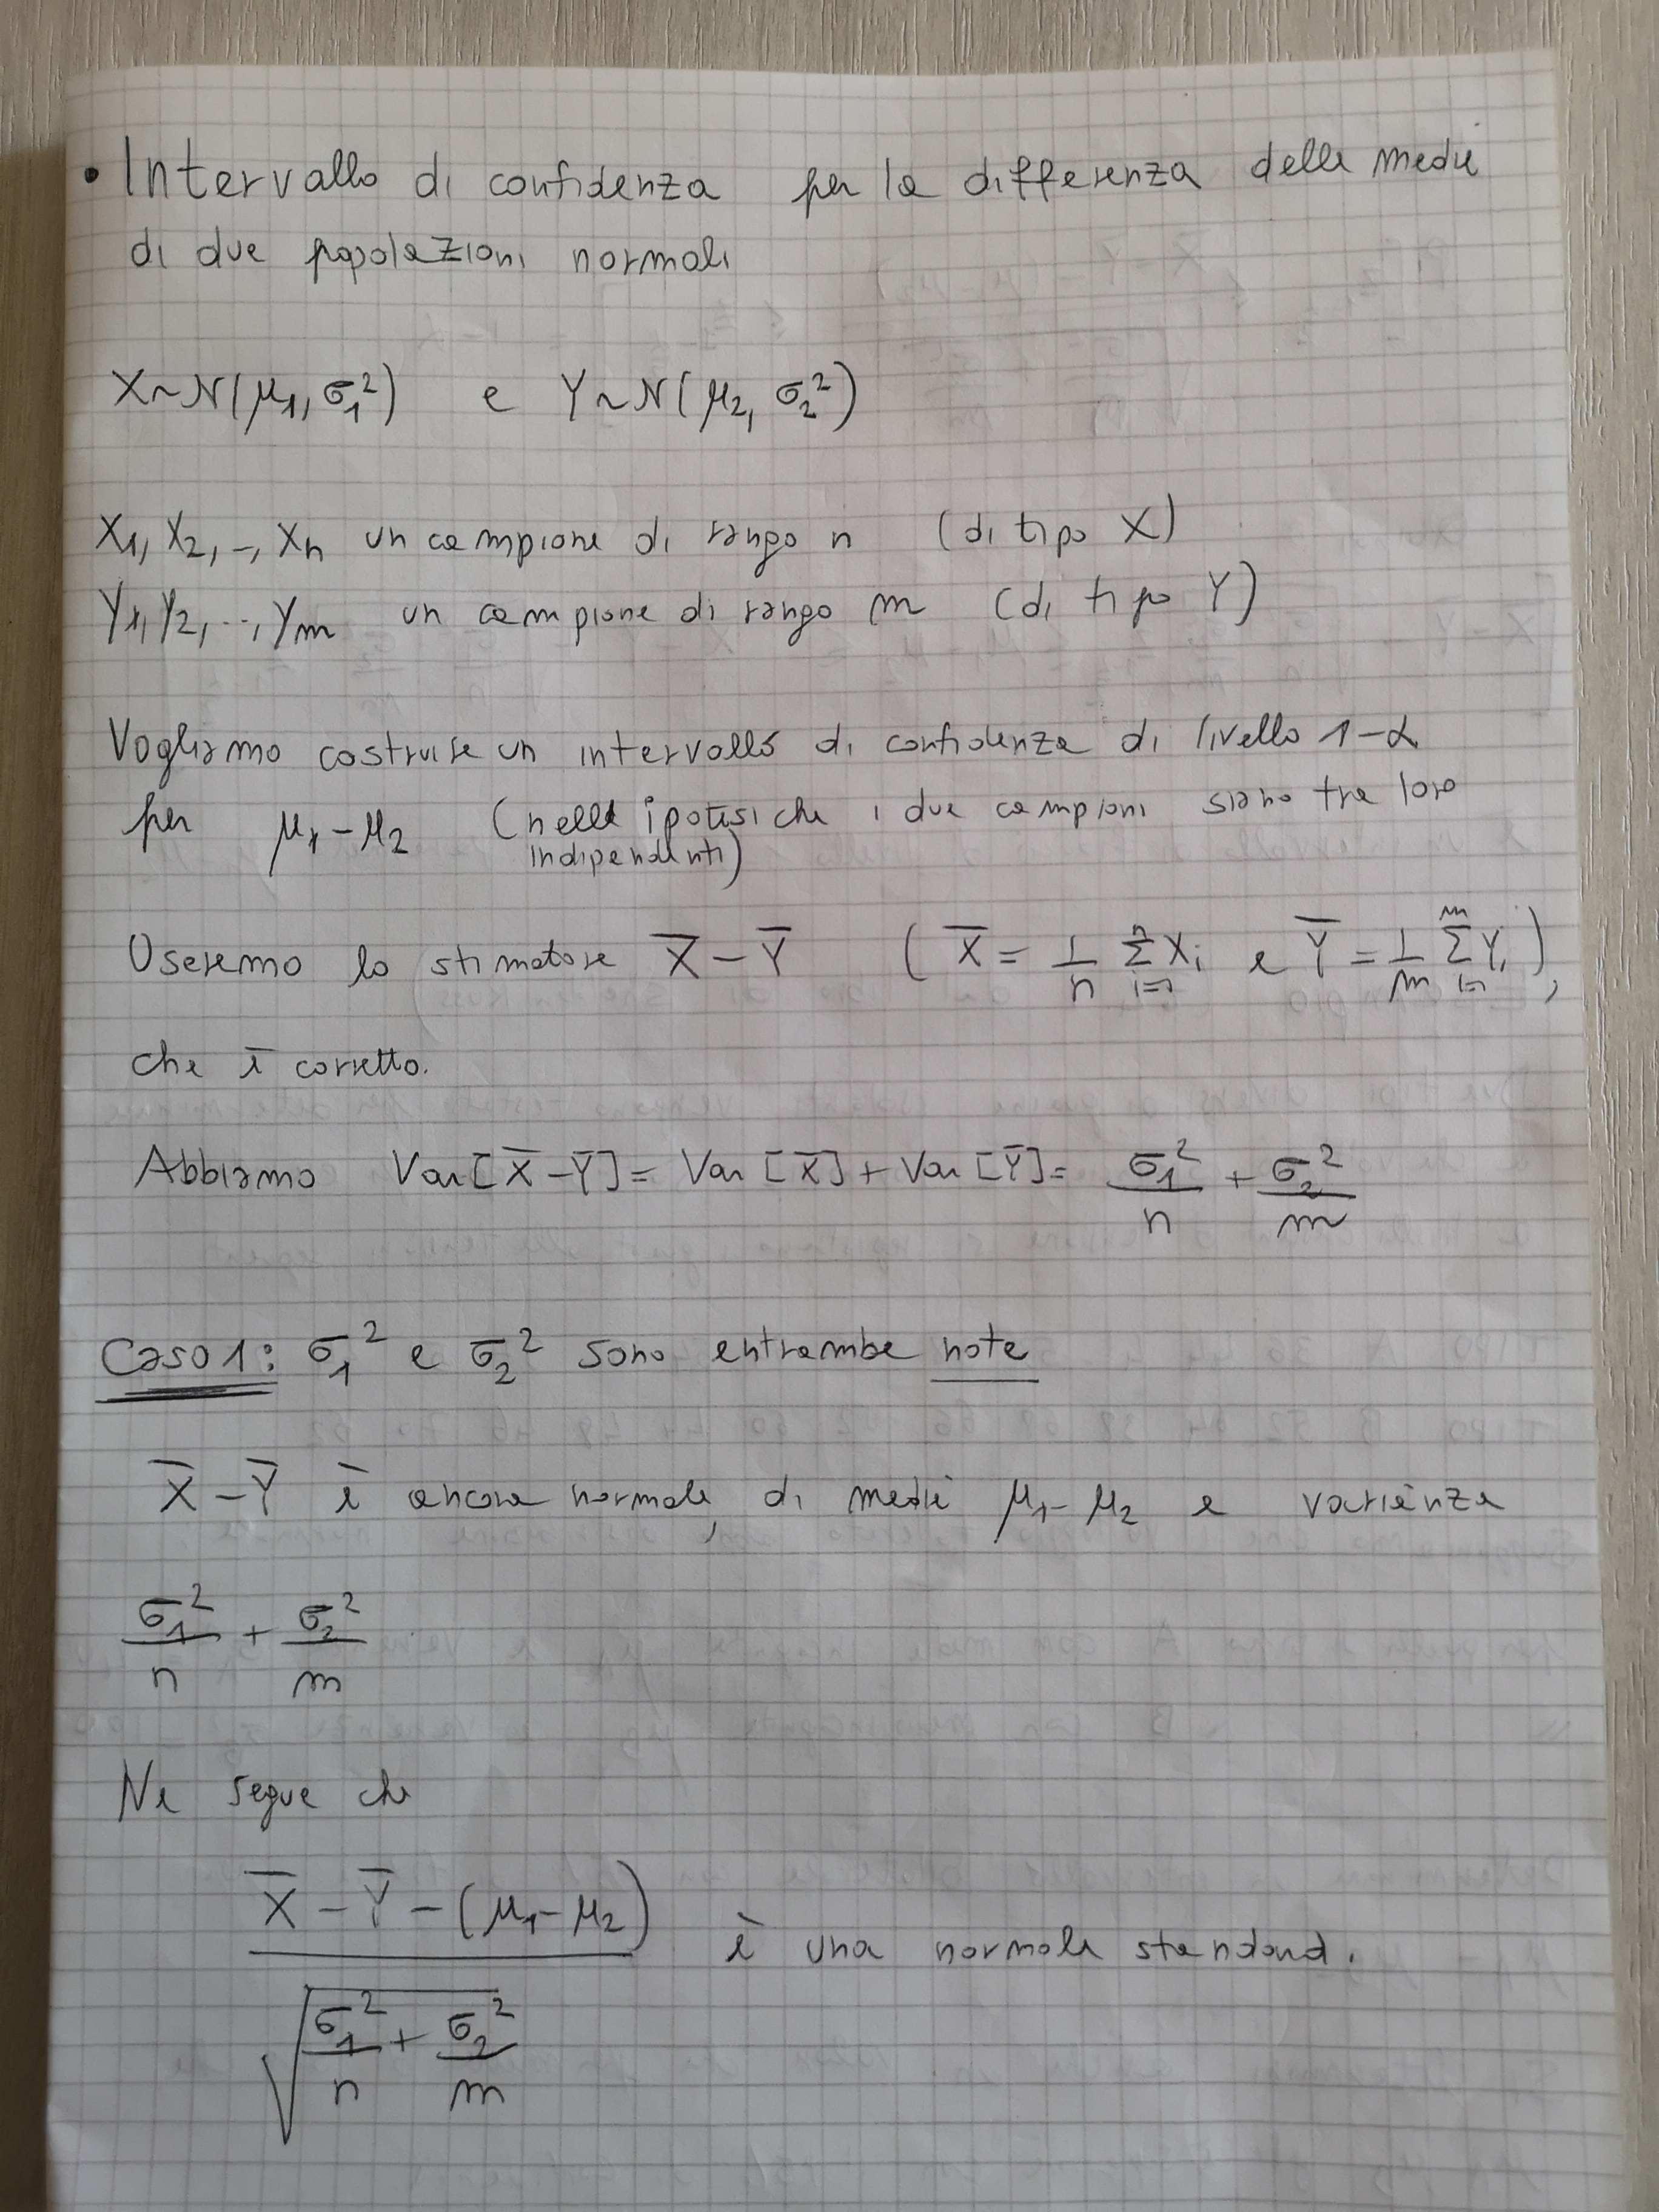 • Intervallo di confidenza per la differenza delle medie
di due popolazioni normali
X~N(μ₁, σ₁²) e Y~N(μ₂, σ₂²)
X₁, X₂, .., Xn un campione di rango n (di tipo X)
Y₁, Y₂, ..., Ym un campione di rango m (di tipo Y)
Vogliamo costruire un intervallo di confidenza di livello 1-α
per μ₁-μ₂ (nelle ipotesi che i due campioni siano tra loro
indipendenti)
Useremo lo stimatore X̅ - Y̅ ( X̅ = 1/n Σ_{i=1}^{n} Xi e Y̅ = 1/m Σ_{i=1}^{m} Yi ),
che è corretto.
Abbiamo Var[X̅-Y̅] = Var[X̅] + Var[Y̅] = σ₁²/n + σ₂²/m
Caso 1: σ₁² e σ₂² sono entrambe note
X̅ - Y̅ è ancora normale, di media μ₁-μ₂ e varianza
σ₁²/n + σ₂²/m
Ne segue che
(X̅ - Y̅ - (μ₁-μ₂)) / √(σ₁²/n + σ₂²/m) è una normale standard.